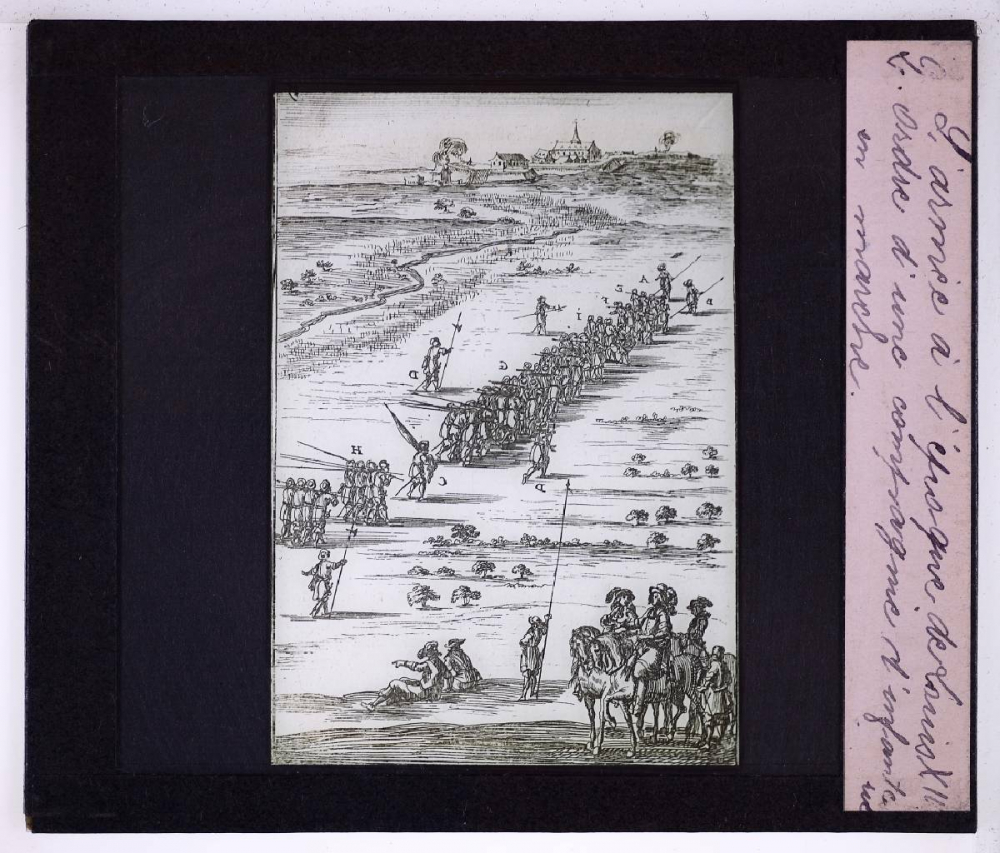 L'armée à l'époque de Louis XIV
2. ordre d'une compagnie d'infanterie
en marche.
A
B
i
G
D
H
C
D